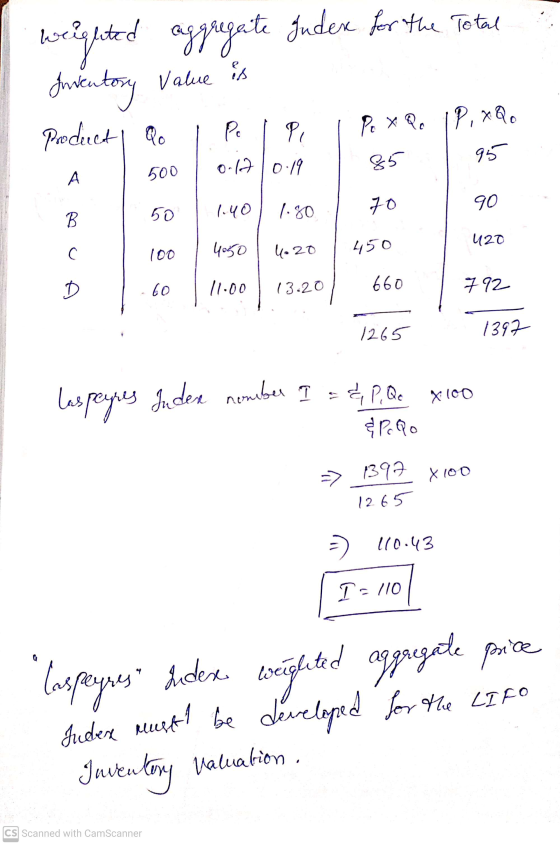 weighted aggregate Index for the Total
Inventory Value is
Product Q0 P0 P1 P0 x Q0 P1 x Q0
A 500 0.17 0.19 85 95
B 50 1.40 1.80 70 90
C 100 4.50 4.20 450 420
D 60 11.00 13.20 660 792
1265 1397
Laspeyres Index number I = Σ P1Q0 x100
Σ P0Q0
⇒ 1397 x100
1265
⇒ 110.43
I = 110
"Laspeyres" Index weighted aggregate price
Index must be developed for the LIFO
Inventory Valuation.
CS Scanned with CamScanner